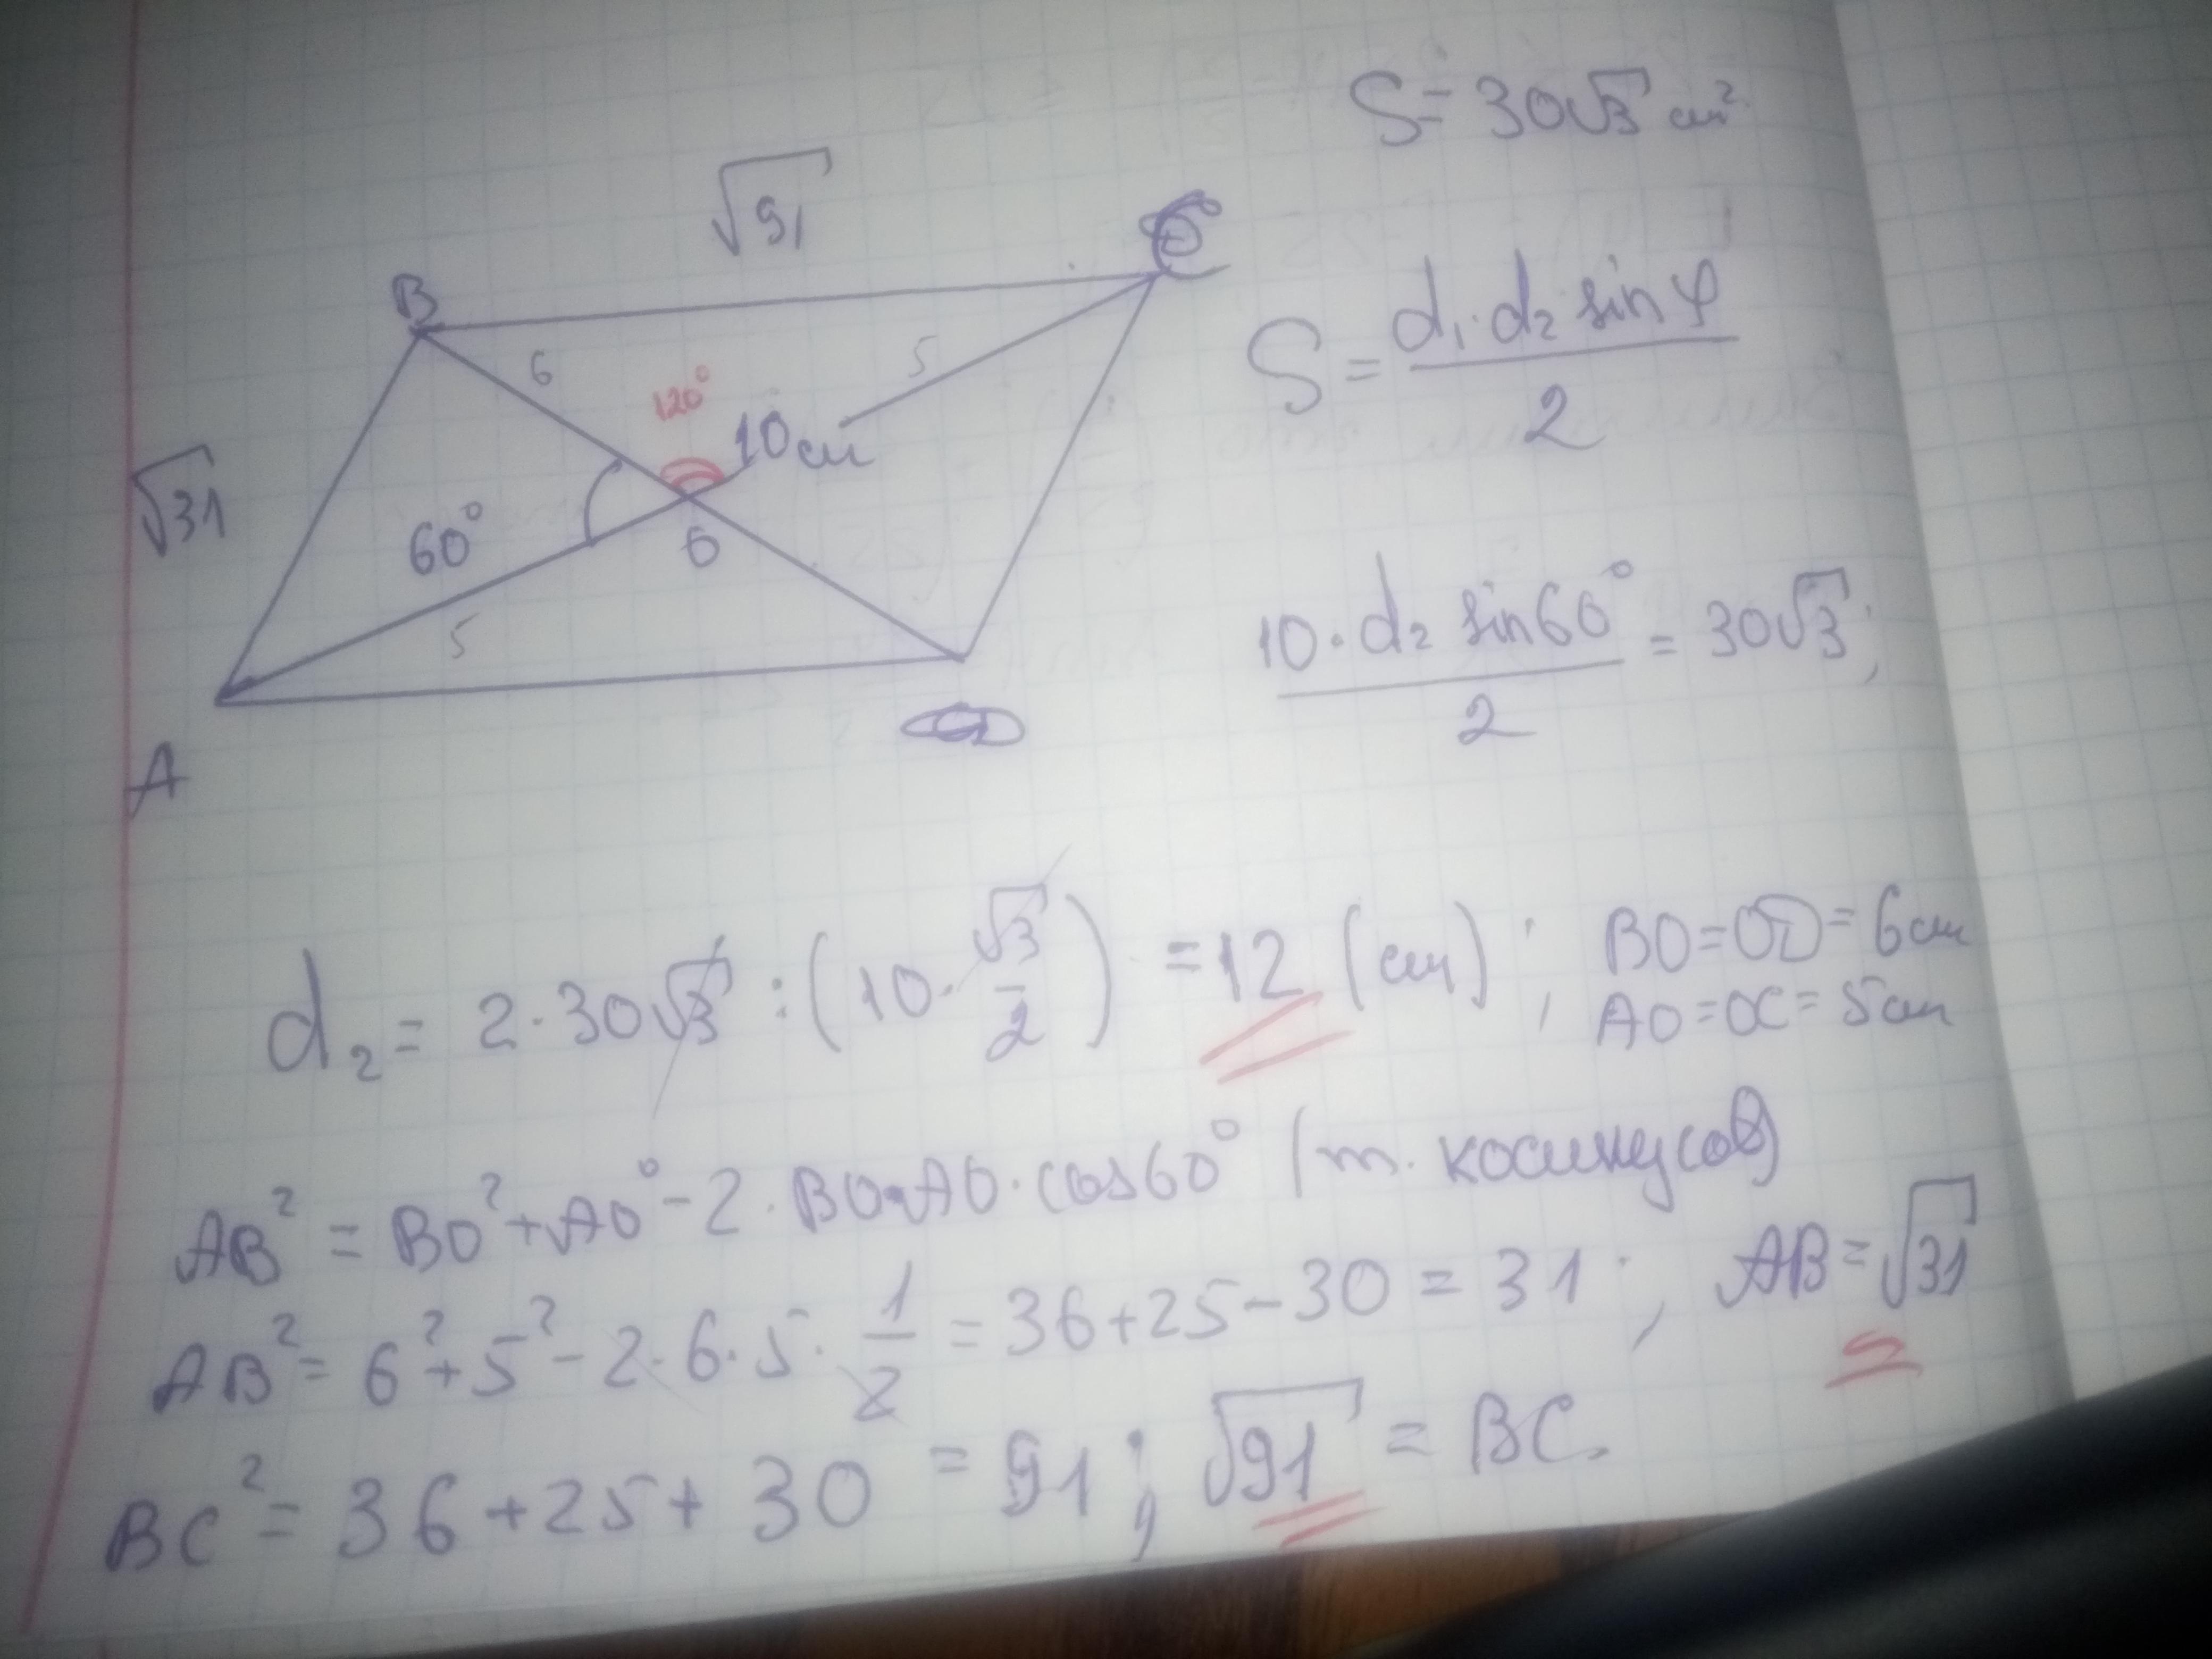 S = 30√3 см²
√91
B
C
6
5
120°
10 см
S = d₁·d₂ sin φ / 2
√31
60°
6
5
10·d₂ sin60° / 2 = 30√3;
A
D
d₂ = 2·30√3 : (10·√3/2) = 12 (см);
BO=OD=6см
AO=OC=5см
AB² = BO²+AO°-2·BO·AO·cos60° (т. косинусов)
AB² = 6²+5²-2·6·5·1/2 = 36+25-30 = 31; AB=√31
BC² = 36+25+30 = 91; √91 = BC.